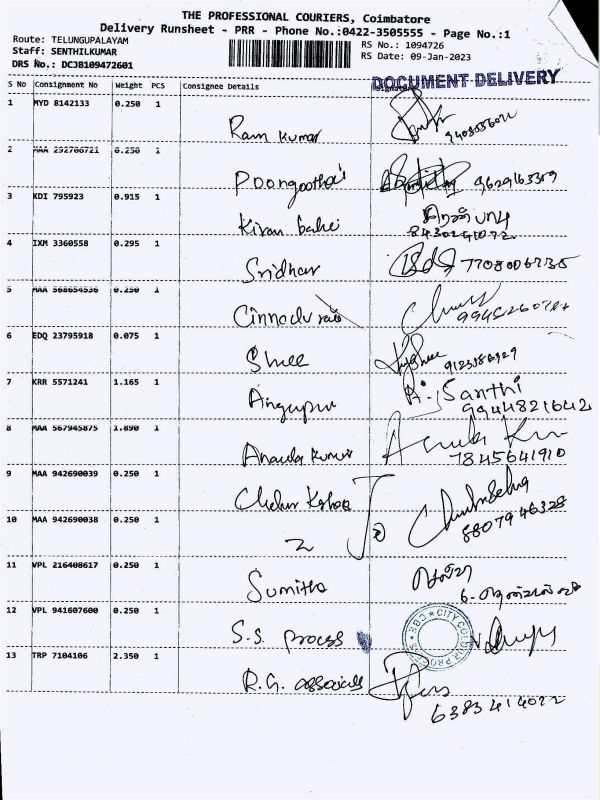 THE PROFESSIONAL COURIERS, Coimbatore
Delivery Runsheet - PRR - Phone No.:0422-3505555 - Page No.:1
Route: TELUNGUPALAYAM
Staff: SENTHILKUMAR
DRS No.: DCJB109472601
RS No.: 1094726
RS Date: 09-Jan-2023
DOCUMENT DELIVERY
S No Consignment No Weight PCS Consignee Details Signature
1 MYD 8142133 0.250 1 Ram Kumar
2 MAA 292706721 0.250 1 Poongothai 9629163359
3 KDI 795923 0.915 1 Kiran
4 IXM 3360558 0.295 1 Sridhar 7708006735
5 MAA 568654536 0.250 1
6 EDQ 23795918 0.075 1 Shree
7 KRR 5571241 1.165 1 A. Santhi
9944821642
8 MAA 567945875 1.890 1 Kumar
7845641910
9 MAA 942690039 0.250 1
10 MAA 942690038 0.250 1 8807946328
11 VPL 216408617 0.250 1 Sumitha
12 VPL 941607600 0.250 1 S.S. Process
CITY COLOUR PROCESS CBE
13 TRP 7104106 2.350 1 R.G. associates
6383414022